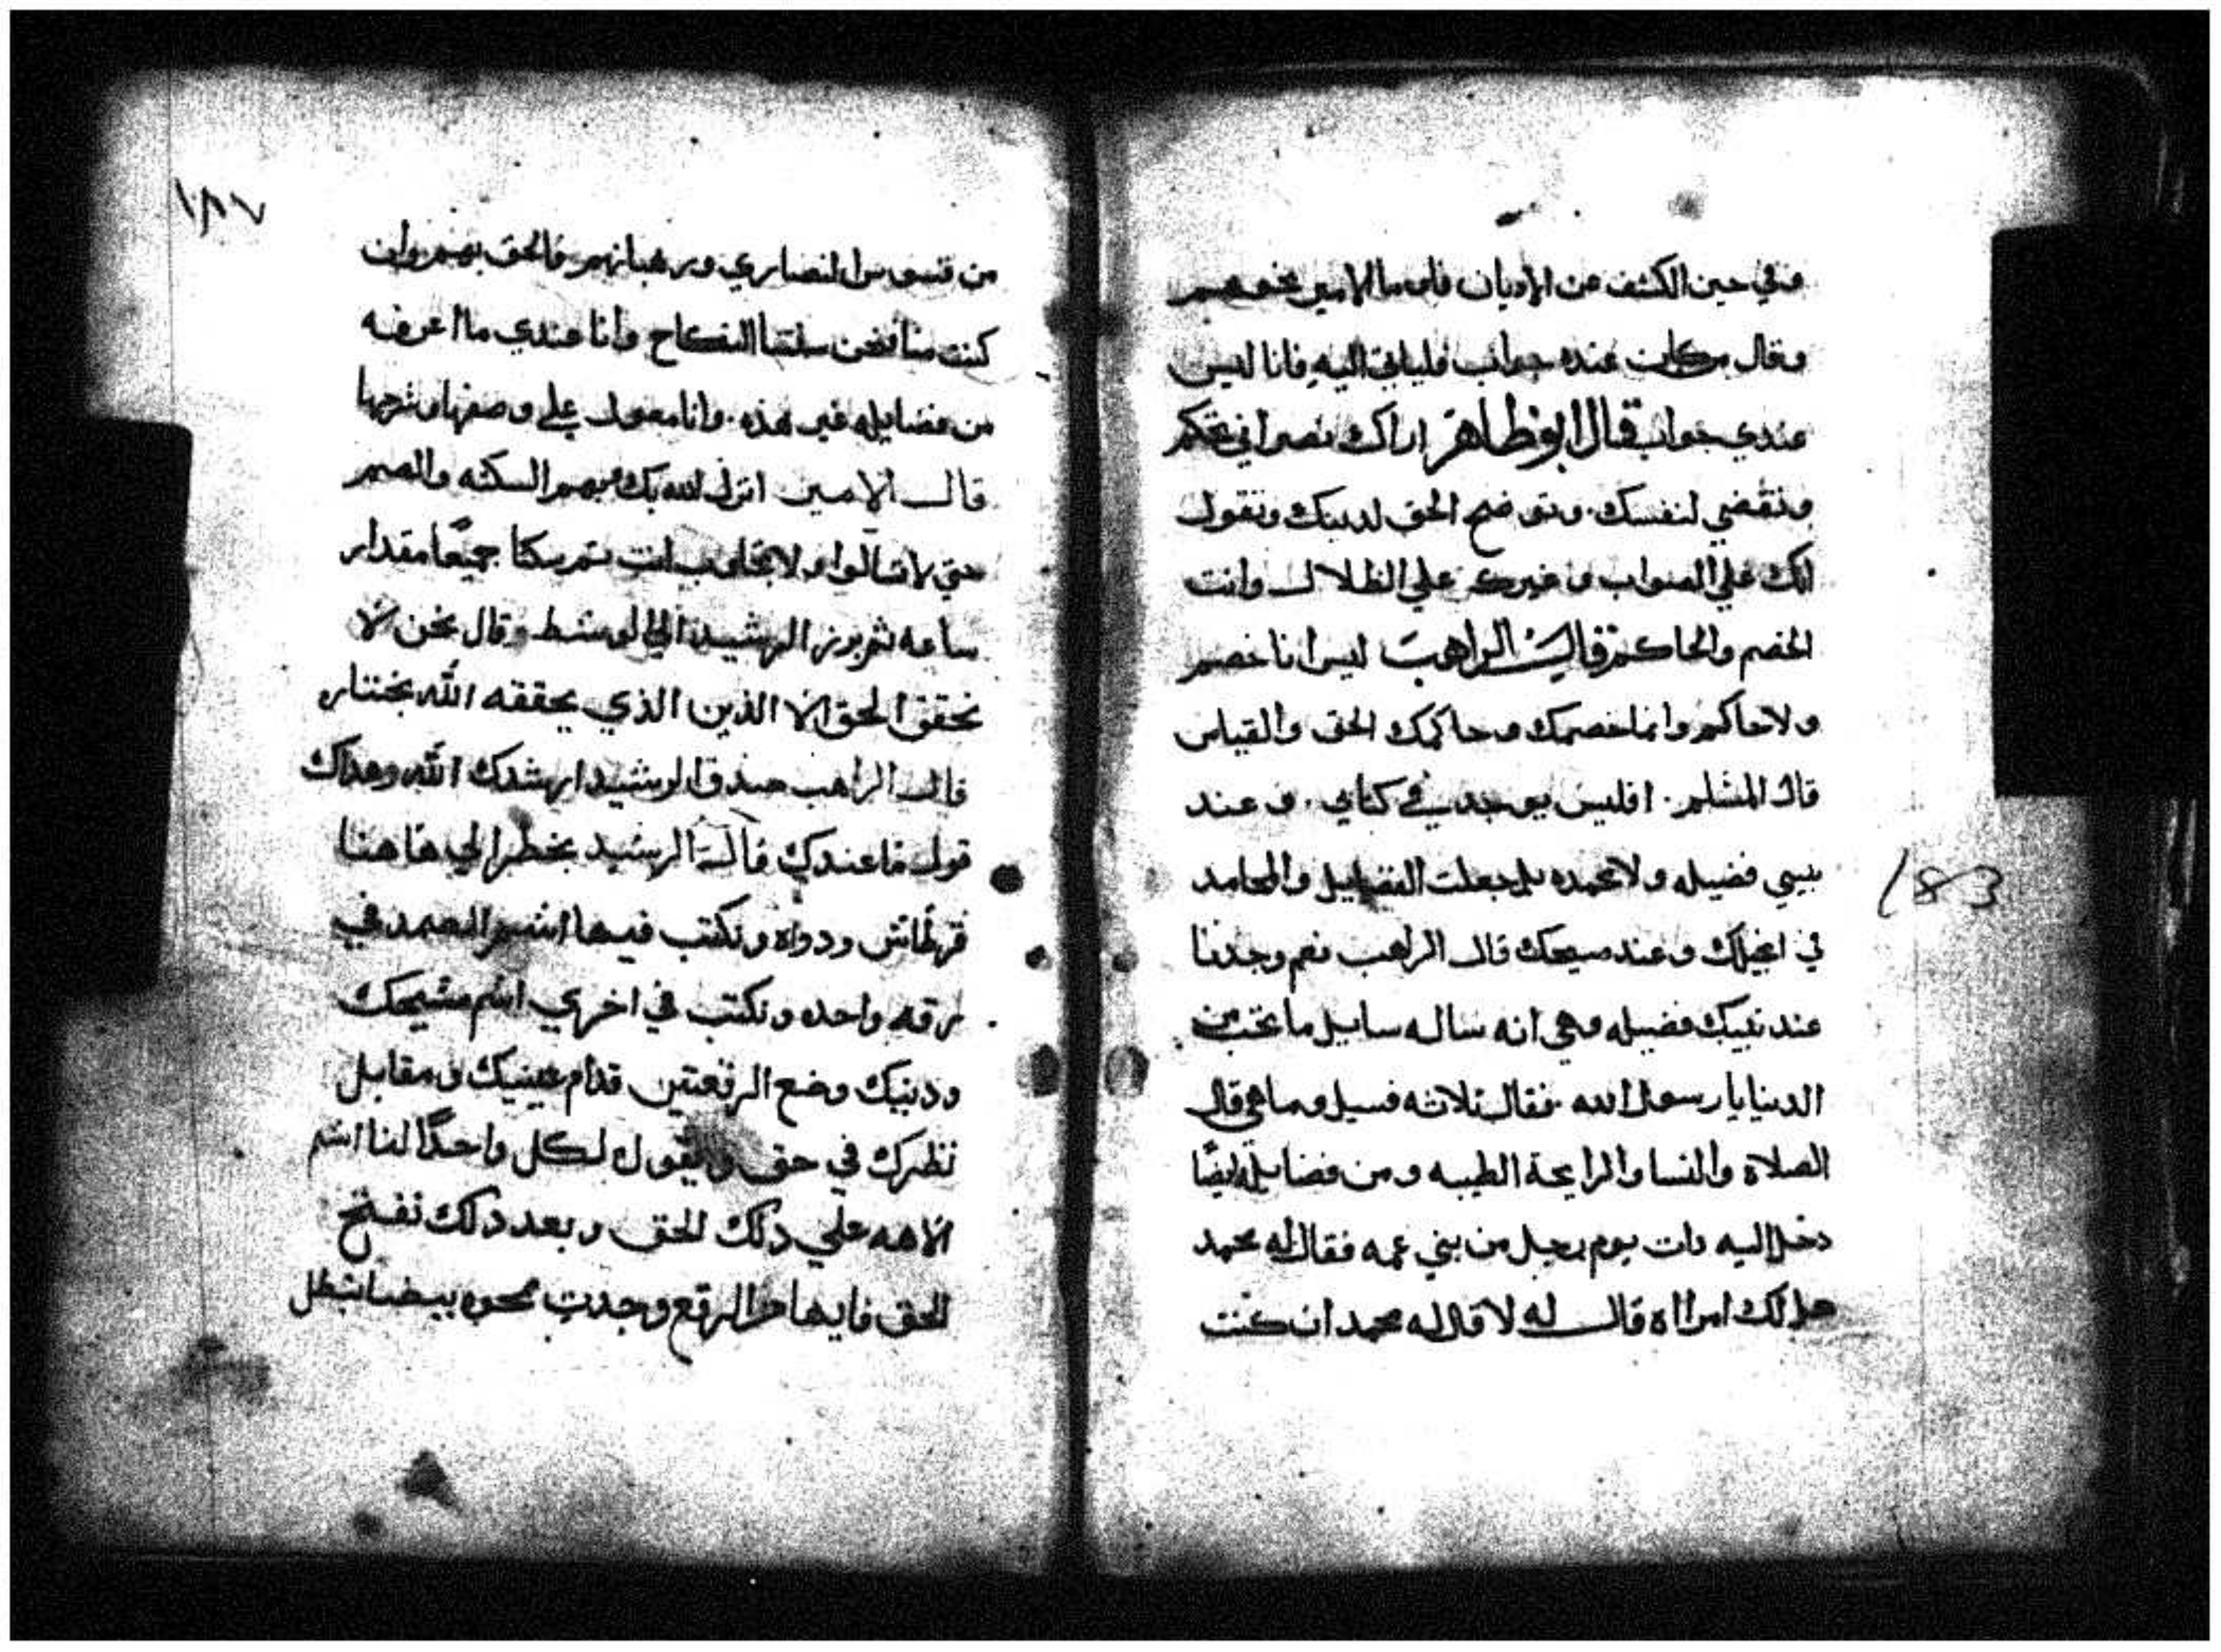 وفي حين الكشف عن الاديان فاوما الامير نحوهم
وقال من كان عنده جواب فلياتي اليه فانا ليس
عندي جواب قال ابو ظاهر اراك نصراني تحكم
وتقضي لنفسك وتوضح الحق لدينك وتقول
انك علي الصواب وغيرك علي الظلال وانت
الخصم والحاكم قال الراهب ليس انا خصم
ولا حاكم وانما خصمك وحاكمك الحق والقياس
قال المسلم افليس يوجد في كتابي وعند
نبيي فضيله ولا محمده بل جعلت الفضايل والمحامد
في انجيلك وعند مسيحك قال الراهب نعم وجدنا
عند نبيك فضيله وهي انه ساله سايل ما تحب من
الدنيا يا رسول الله فقال ثلاثه فسيل وما هي قال
الصلاة والنسا والرايحة الطيبه ومن فضايله ايضًا
دخل اليه دات يوم رجل من بني عمه فقال له محمد
هل لك امراه قال له لا قال له محمد ان كنت
١٨٧
183
من قسوس النصاري ورهبانهم فالحق بهم وان
كنت منا فمن سنتنا النكاح وانا عندي ما اعرفه
من فضايله غير هذه وانا معول علي وصفها وشرحها
قال الامير انزل الله بك وبهم السكته والصمم
حتي لا تسالوا ولا تجاوب انت ثم سكتا جميعًا مقدار
ساعه ثم برز الرشيد الي الوسط وقال نحن لا
نحقق الحق الا الذين الذي يحققه الله بختاره
قال الراهب صدق الرشيد ارشدك الله وهداك
قول ما عندك قال الرشيد يحظر الي هاهنا
قرطاس ودواه ونكتب فيها اسم الصمد في
رقعه واحده ونكتب في اخري اسم مسيحك
ودينك وضع الرقعتين قدام عينيك ومقابل
نظرك في حق ونقول لكل واحدًا لنا اسم
الاهه علي دلك الحق وبعد دلك نفتح
الحق فايها من الرقع وجدت ممحوه بيضا نبطل